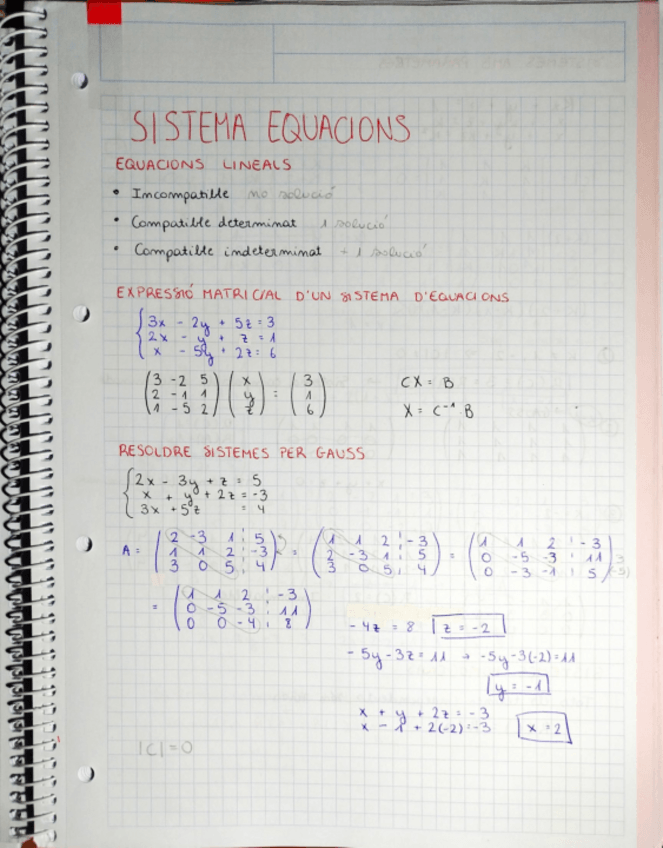 SISTEMA EQUACIONS
EQUACIONS LINEALS
• Incompatible no solució
• Compatible determinat 1 solució
• Compatible indeterminat + 1 solució
EXPRESSIÓ MATRICIAL D'UN SISTEMA D'EQUACIONS
3x - 2y + 5z = 3
2x - y + z = 1
x - 5y + 2z = 6
(3 -2 5) (x) = (3)
(2 -1 1) (y) (1) CX = B
(1 -5 2) (z) (6) X = C⁻¹ B
RESOLDRE SISTEMES PER GAUSS
2x - 3y + z = 5
x + y + 2z = -3
3x + 5z = 4
A = (2 -3 1 ¦ 5) = (1 1 2 ¦ -3) = (1 1 2 ¦ -3)
(1 1 2 ¦ -3) (2 -3 1 ¦ 5) (0 -5 -3 ¦ 11)
(3 0 5 ¦ 4) (3 0 5 ¦ 4) (0 -3 -1 ¦ 5)
= (1 1 2 ¦ -3)
(0 -5 -3 ¦ 11)
(0 0 -4 ¦ 8)
-4z = 8 z = -2
-5y - 3z = 11 → -5y - 3(-2) = 11
y = -1
x + y + 2z = -3
x - 1 + 2(-2) = -3 x = 2
|C| = 0